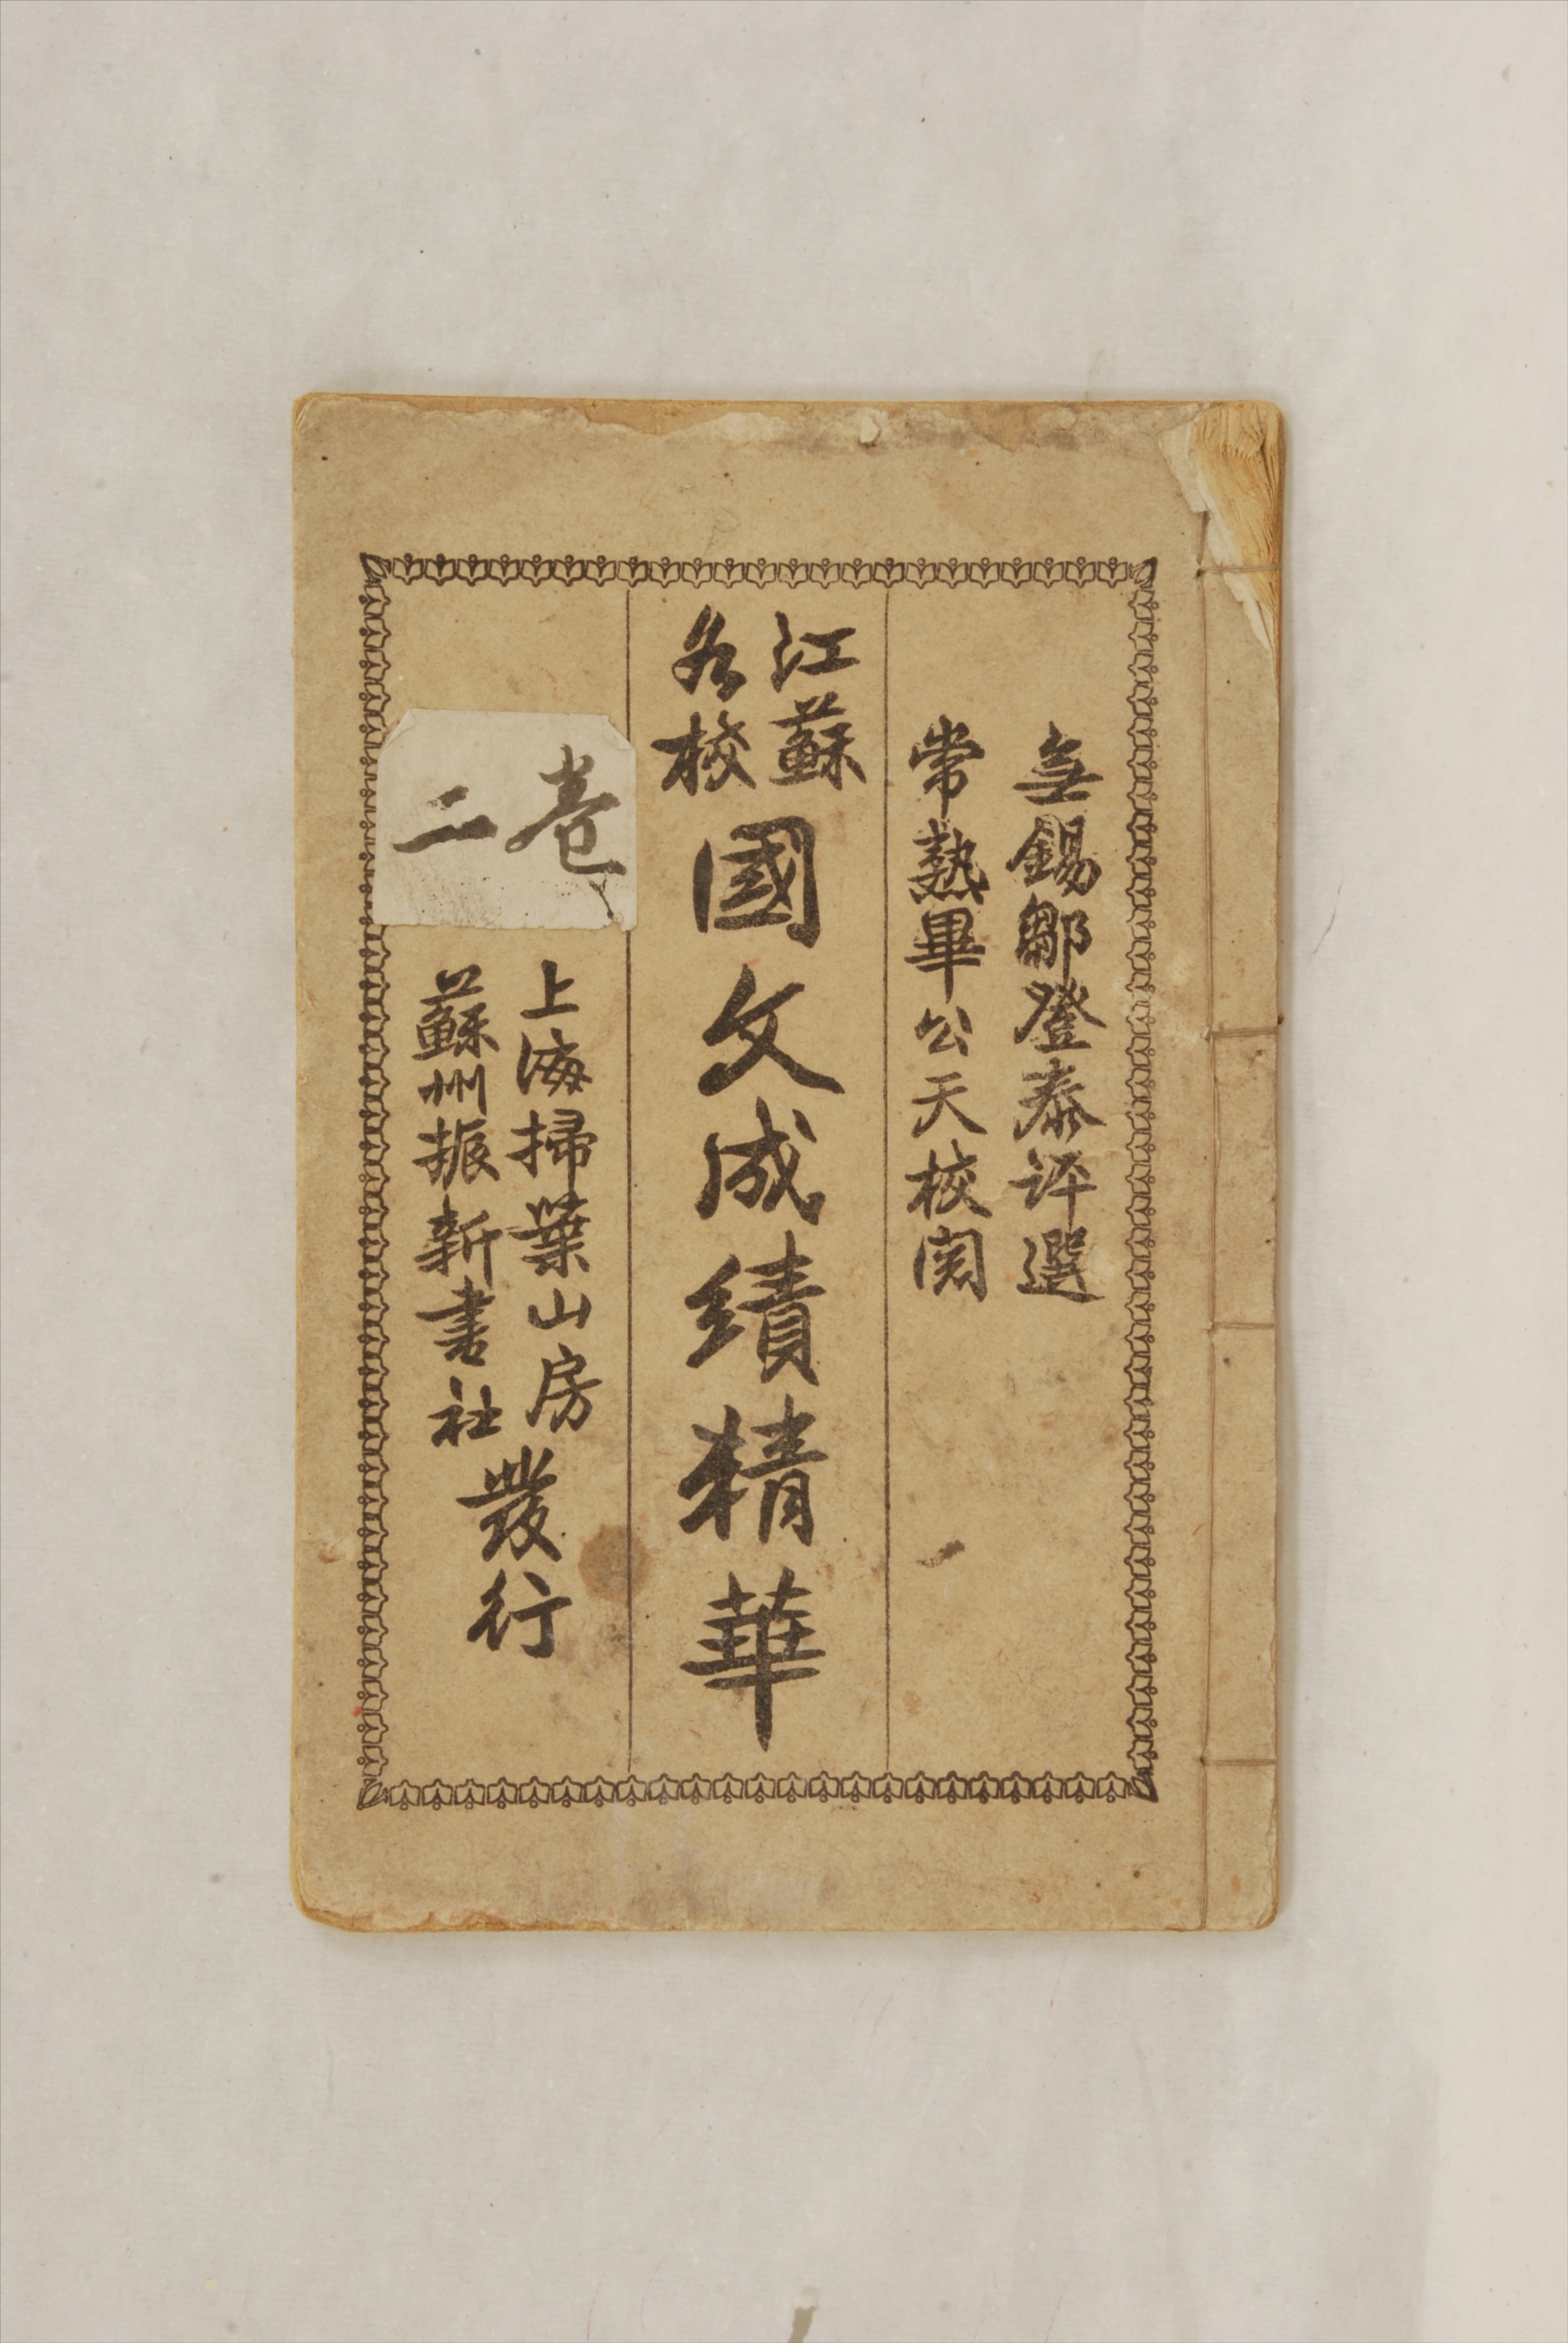 無錫鄒登泰评選
常熟畢公天校閲
江蘇
各校
國文成績精華
卷
二
上海掃葉山房
蘇州振新書社
發行